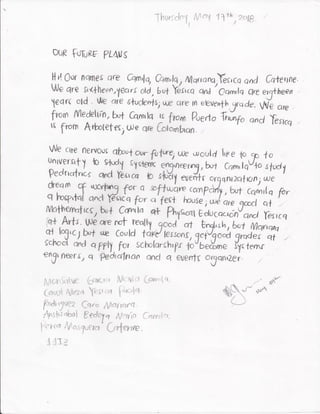 Thursday, May 17th, 2018
OUR FUTURE PLANS
Hi! Our names are Camila, Camila, Mariana, Yesica and Caterine.
We are sixtheen years old, but Yesica and Camila are eigtheen
years old. We are students, we are in eleventh grade. We are
from Medellín, but Camila is from Puerto Triunfo and Yesica
is from Arboletes, we are Colombian.
We are nervous about our future, we would like to go to
university to study systems engineering, but Camila to study
Pediatrics and Yesica to study events organization; we
dream of working for a software company, but Camila for
a hospital and Yesica for a fest house; we are good at
Mathematics, but Camila at Physical Education and Yesica
at Arts. We are not really good at English, but Mariana
at logic; but we could take lessons, get good grades at
school and apply for scholarships to become systems
engineers, a pediatrician and a events organizer.
Garcia Maria Camila.
Yesica
Rodriguez Caro Mariana.
Bedoya Maria Camila.
Mosquera Caterine.